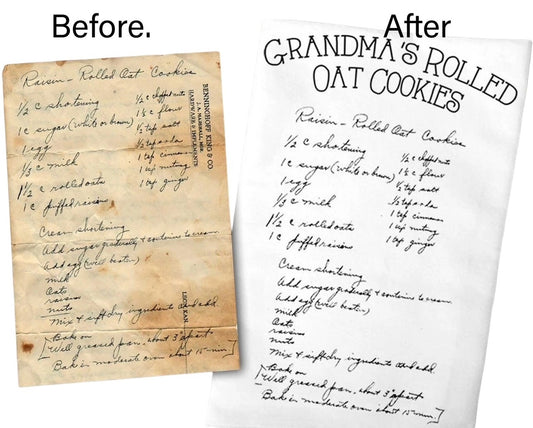 Before.
After
Raisin - Rolled Oat Cookies
1/2 c shortening
1 c sugar (white or brown)
1 egg
1/3 c milk
1 1/2 c rolled oats
1 c puffed raisins
1/2 c chopped nuts
1 1/2 c flour
1/2 tsp salt
1/2 tsp soda
1 tsp cinnamon
1 tsp nutmeg
1 tsp ginger
BENNINGHOFF KING & CO
HARDWARE & IMPLEMENTS
Cream shortening
Add sugar gradually & continue to cream.
Add egg (well beaten)
milk
Oats
raisins
nuts
Mix & sift dry ingredients and add.
Bake on
[Well greased pan, about 3" apart
Bake in moderate oven about 15 min.]
GRANDMA'S ROLLED
OAT COOKIES
Raisin - Rolled Oat Cookies
1/2 c shortening
1 c sugar (white or brown)
1 egg
1/3 c milk
1 1/2 c rolled oats
1 c puffed raisins
1/2 c chopped nuts
1 1/2 c flour
1/2 tsp salt
1/2 tsp soda
1 tsp cinnamon
1 tsp nutmeg
1 tsp ginger
Cream shortening
Add sugar gradually & continue to cream.
Add egg (well beaten)
milk
Oats
raisins
nuts
Mix & sift dry ingredients and add.
Bake on
[Well greased pan, about 3" apart
Bake in moderate oven about 15 min.]